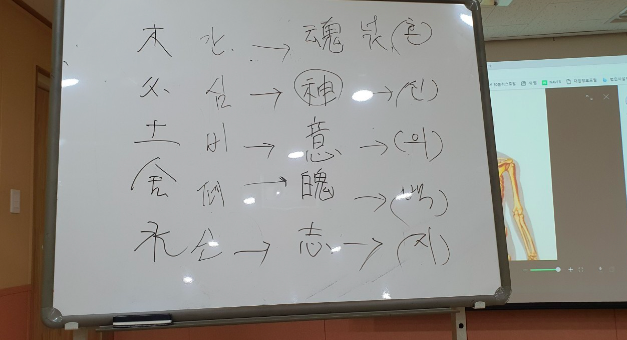 木 간 → 魂 (혼)
火 심 → 神 → (신)
土 비 → 意 → (의)
金 폐 → 魄 → (백)
水 신 → 志 → (지)